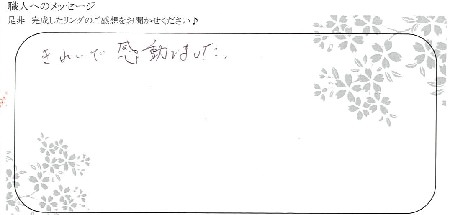 職人へのメッセージ
是非 完成したリングのご感想をお聞かせください♪
きれいで感動しました。